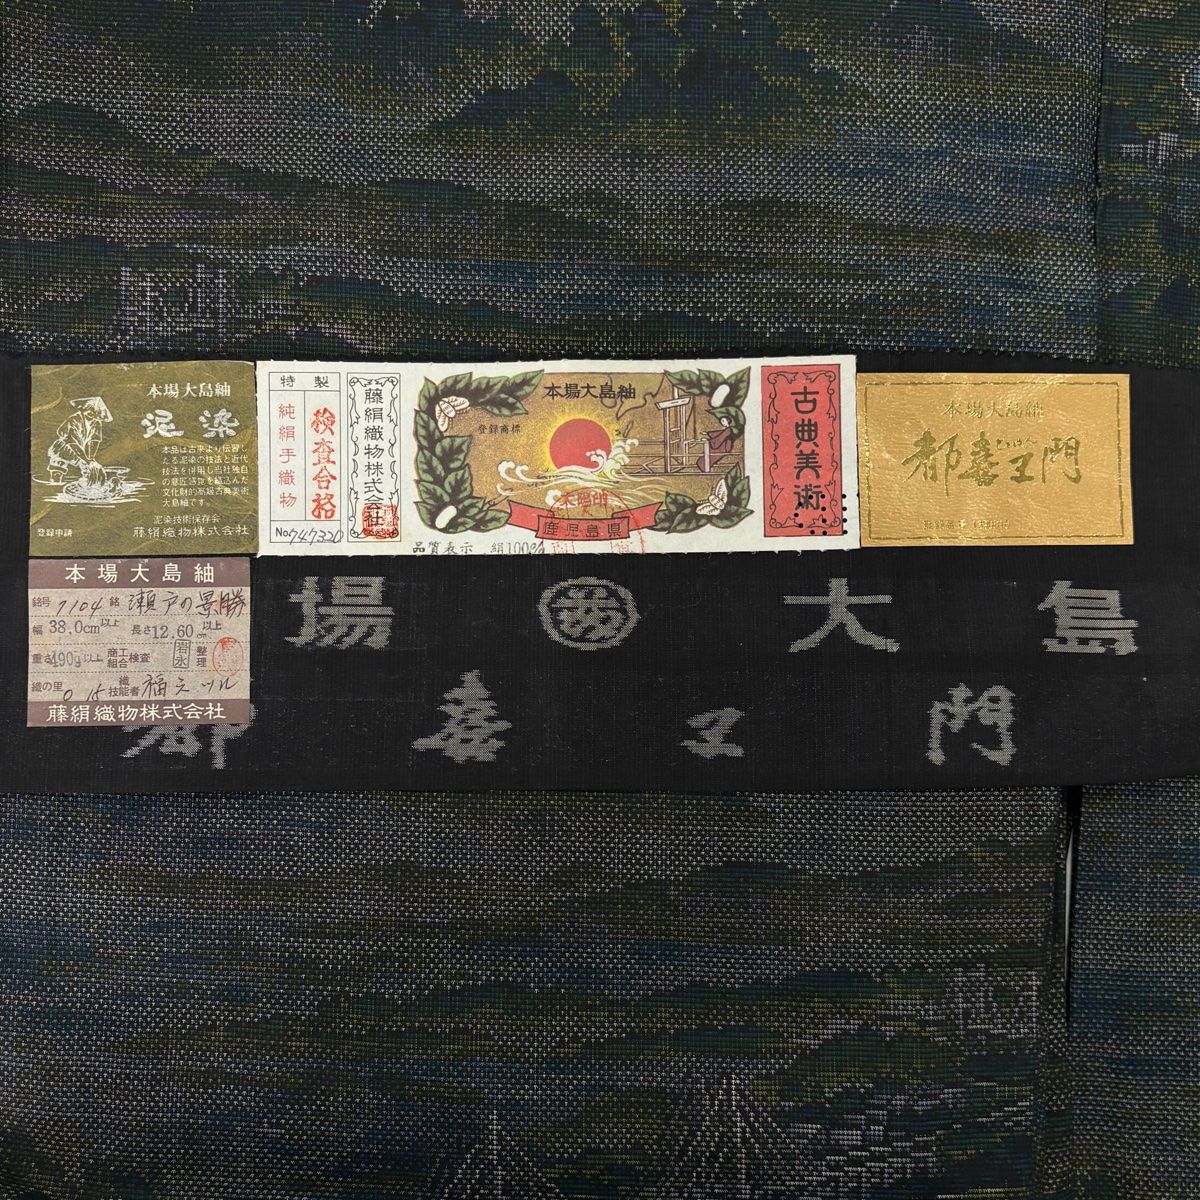 本場大島紬
泥染
本品は古来より伝習し
たる泥染の技法と近代
技法を併用し当社独自
の意匠感覚を織込んだ
文化財的高級古典美術
大島紬です。
泥染技術保存会
登録申請 藤絹織物株式会社
特製
純絹手織物
検査合格
No.747320
藤絹織物株式会社
本場大島紬
登録商標
太陽印
鹿児島県
品質表示 絹100%
古典美術
本場大島紬
都喜ヱ門
本場大島紬
銘号 7104 銘 瀬戸の景勝
幅 38.0cm以上 長さ 12.60m以上
重さ 490g以上 商工組合検査 整理
織の里 織技能者
藤絹織物株式会社
場 大 島
都 喜 ヱ 門